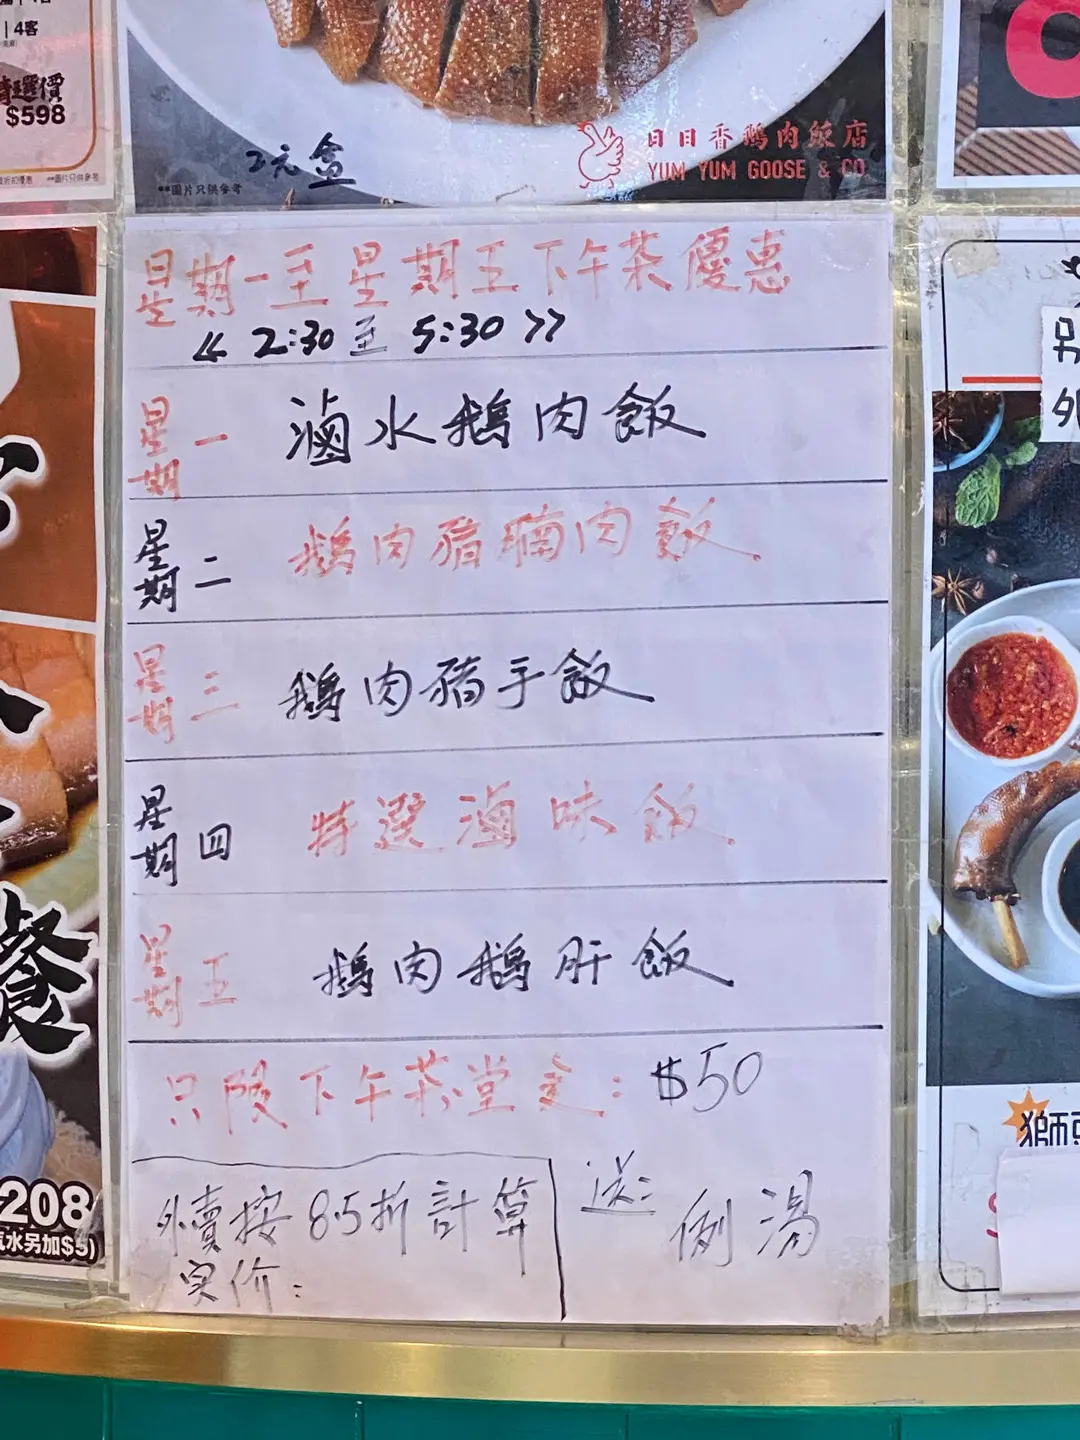 4客
特選價
$598
2元盒
**圖片只供參考
日日香鵝肉飯店
YUM YUM GOOSE & CO
星期一至星期五下午茶優惠
《 2:30 至 5:30 》
星期一 滷水鵝肉飯
星期二 鵝肉豬腩肉飯
星期三 鵝肉豬手飯
星期四 特選滷味飯
星期五 鵝肉鵝肝飯
只限下午茶堂食: $50
外賣按8.5折計算
实价:
送: 例湯
餐
208
汽水另加$5)
另
外
獅頭